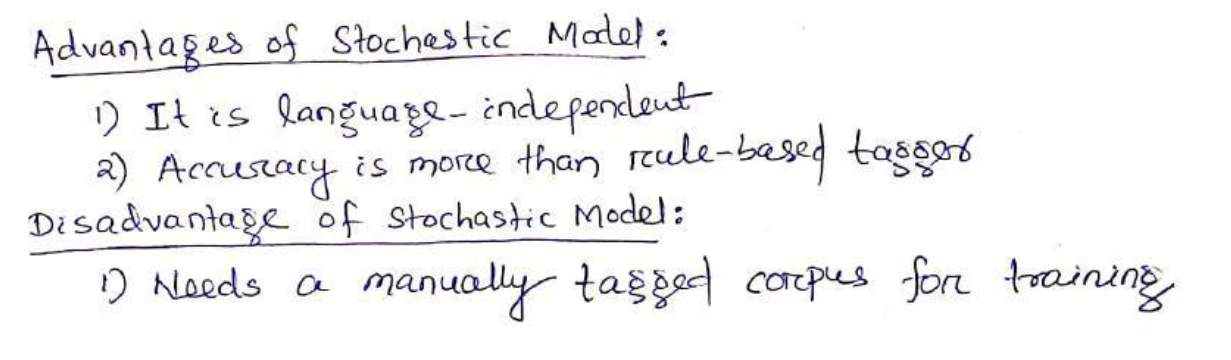 Advantages of Stochastic Model:
1) It is language-independent
2) Accuracy is more than rule-based tagger
Disadvantage of Stochastic Model:
1) Needs a manually tagged corpus for training